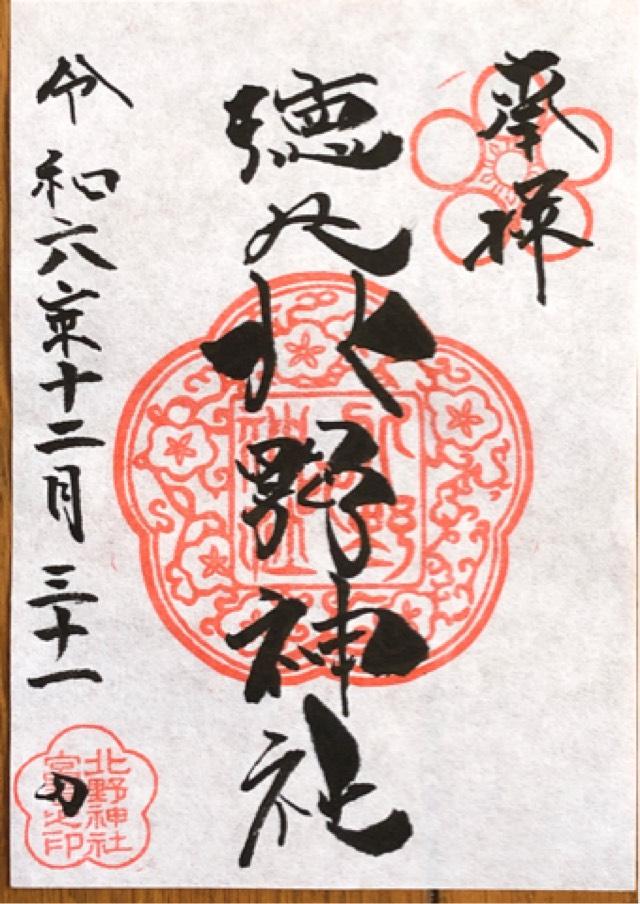 奉拝
徳丸北野神社
北野神社
令和六年十二月三十一日
北野神社
宮司之印